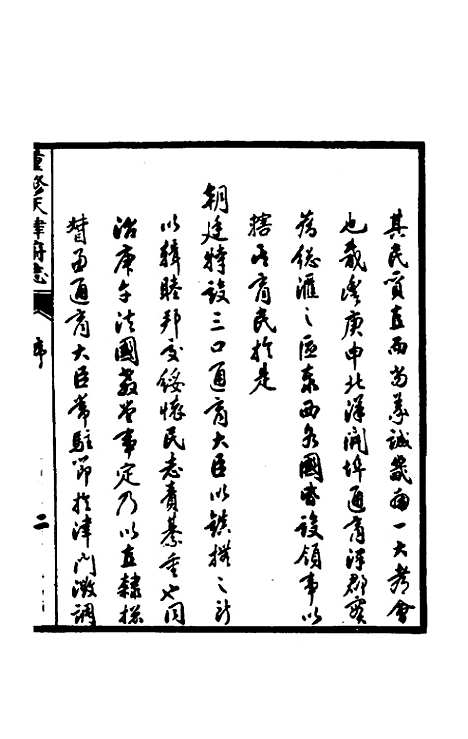 其民質直而尚義誠畿南一大都會
也咸豐庚申北洋開埠通商津郡實
為總滙之區泰西各國皆設領事以
轄其商民於是
朝廷特設三口通商大臣以鎮撫之所
以輯睦邦交綏懷民志責綦重也同
治庚午法國教堂事定乃以直隸總
督兼通商大臣常駐節於津門調
重修天津府志
序
二